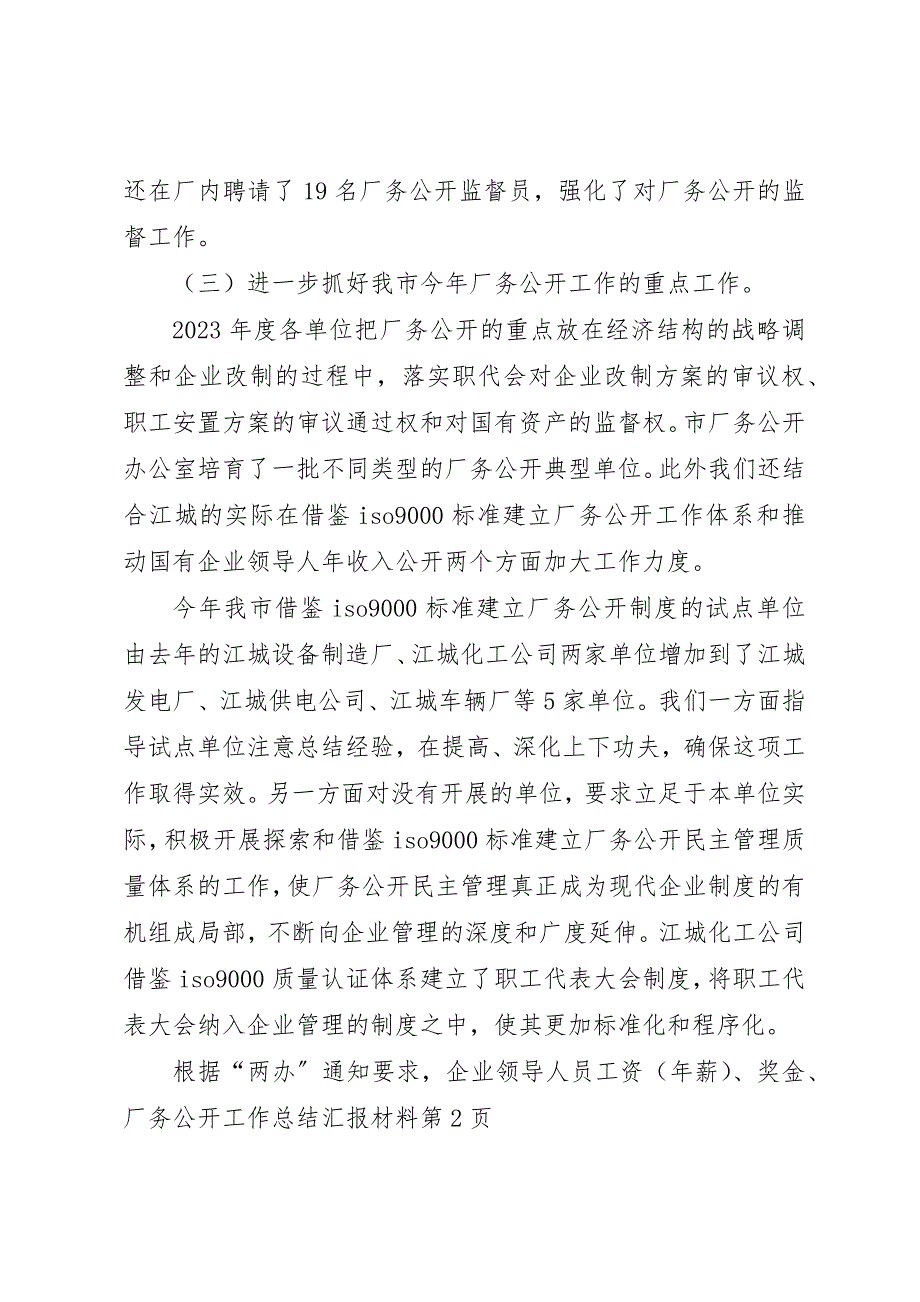 还在厂内聘请了 19 名厂务公开监督员，强化了对厂务公开的监
督工作。
（三）进一步抓好我市今年厂务公开工作的重点工作。
2023 年度各单位把厂务公开的重点放在经济结构的战略调
整和企业改制的过程中，落实职代会对企业改制方案的审议权、
职工安置方案的审议通过权和对国有资产的监督权。市厂务公开
办公室培育了一批不同类型的厂务公开典型单位。此外我们还结
合江城的实际在借鉴 iso9000 标准建立厂务公开工作体系和推
动国有企业领导人年收入公开两个方面加大工作力度。
今年我市借鉴 iso9000 标准建立厂务公开制度的试点单位
由去年的江城设备制造厂、江城化工公司两家单位增加到了江城
发电厂、江城供电公司、江城车辆厂等 5 家单位。我们一方面指
导试点单位注意总结经验，在提高、深化上下功夫，确保这项工
作取得实效。另一方面对没有开展的单位，要求立足于本单位实
际，积极开展探索和借鉴 iso9000 标准建立厂务公开民主管理质
量体系的工作，使厂务公开民主管理真正成为现代企业制度的有
机组成局部，不断向企业管理的深度和广度延伸。江城化工公司
借鉴 iso9000 质量认证体系建立了职工代表大会制度，将职工代
表大会纳入企业管理的制度之中，使其更加标准化和程序化。
根据“两办〞通知要求，企业领导人员工资（年薪）、奖金、
厂务公开工作总结汇报材料第 2 页